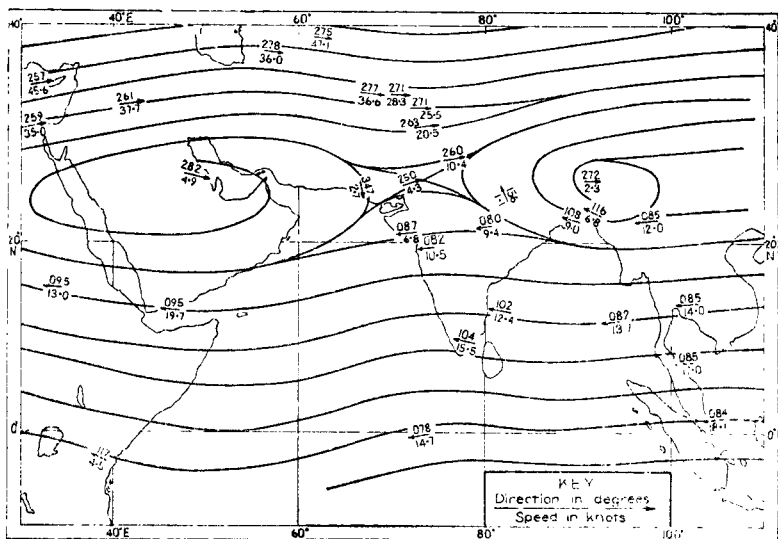 40°E 60° 80° 100°
40° 40°
275
278
36.0
257
45.6
261
37.7
277
36.6
271
28.3
271
25.5
259
35.0
20.5
260
10.4
282
4.9
347
250
4.3
272
2.3
109
9.0
116
6.8
085
12.0
087
6.8
080
9.4
082
10.5
20°
N
20°
N
095
13.0
095
19.7
102
12.4
087
13.1
085
14.0
104
15.5
085
084
078
14.7
0° 0°
KEY
Direction in degrees
Speed in knots
40°E 60° 80° 100°